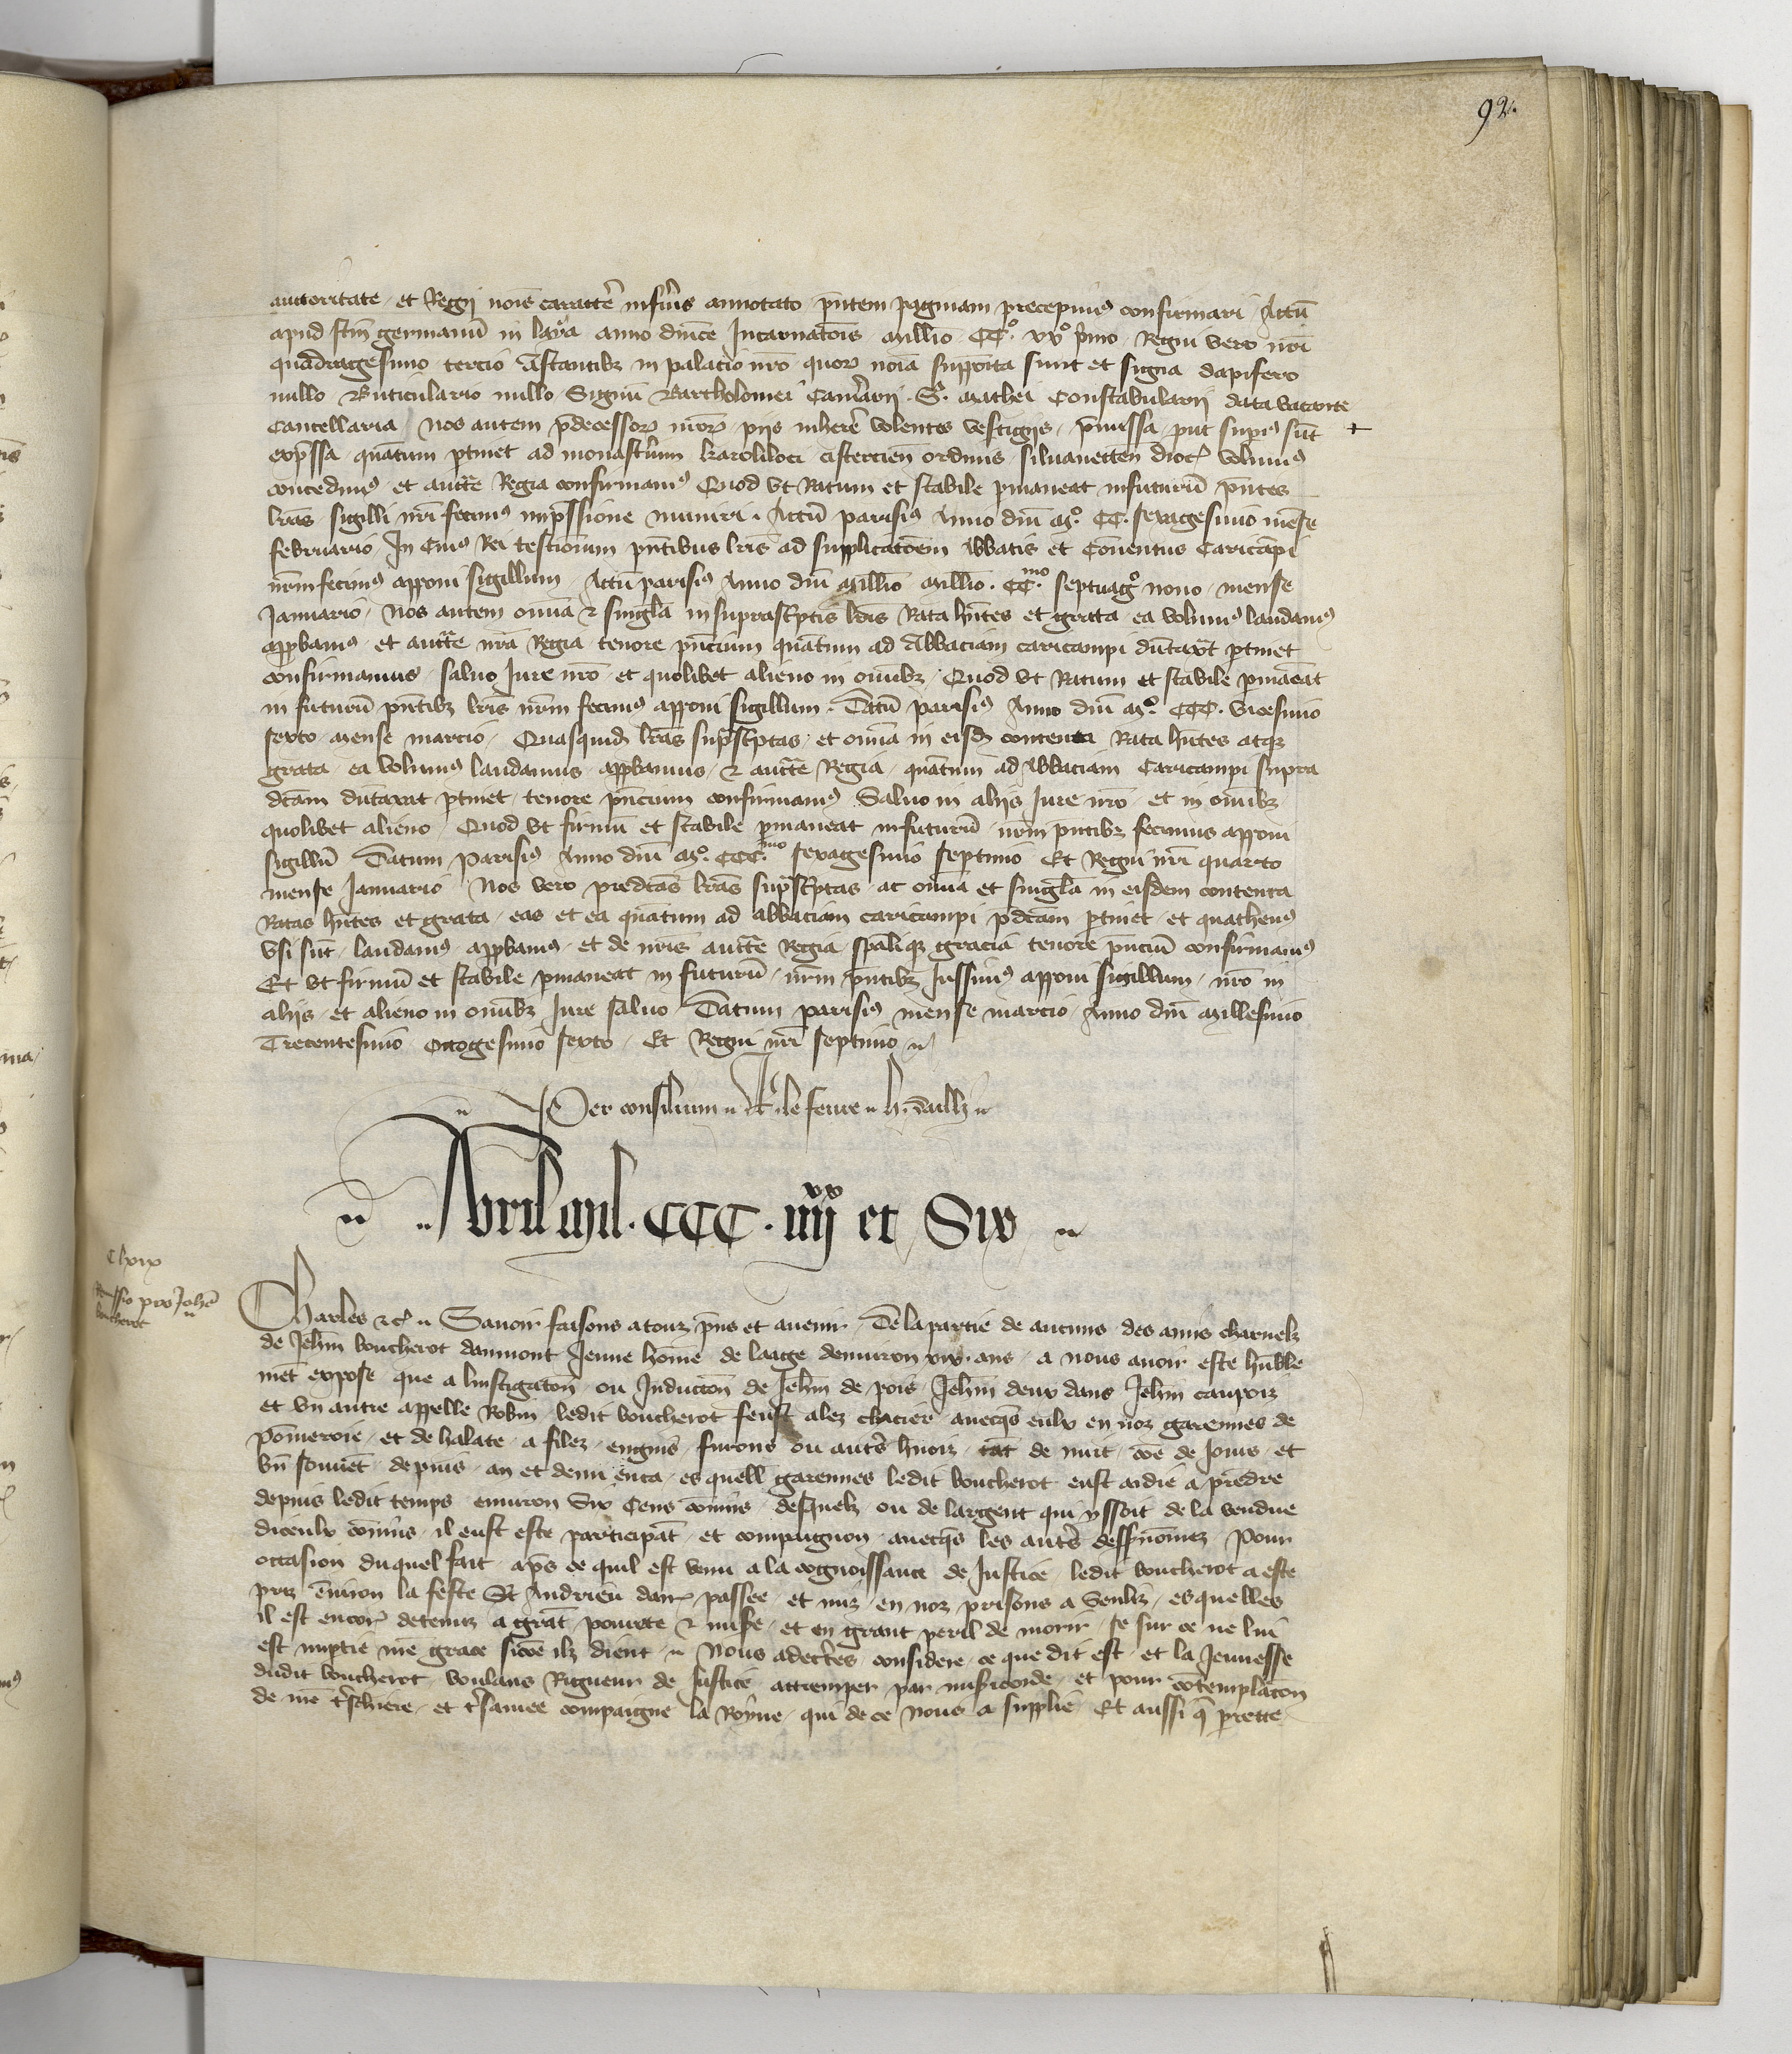 92.
auctoritate et Regij noīs caractē inferiꝰ annotato pn̄tem paginam precepimꝰ confirmari Actū
apud sc̄m germanū in laya anno dn̄ice Incarnatōis millīo CCº. xxº pͥmo Regni vero nr̄i
quadragesimo tercio Astantibꝫ in palacio nr̄o quoꝝ noīa supposita sunt et signa dapifero
nullo Buticulario nullo Signū Bartholomei Camerarij S. mathei Constabularij data vacante
Cancellaria Nos autem p̄decessoꝝ nr̄oꝝ pijs inherē volentes vestigijs p̄missa put supiꝰ sūt +
exp̄ssa quātum ꝑtinet ad monasterium karoliloci cistercien ordinis siluanecten dioc̄ volumꝰ
concedimꝰ et auctē Regia confirmamꝰ Quod vt Ratum et stabile ꝑmaneat infuturū pn̄tes
lr̄as sigilli nr̄i fecimꝰ imp̄ssione muniri. Actū parisiꝰ Anno dn̄i mº. CC. sexagesimo mēse
februario In Cuiꝰ Rei testioium pn̄tibus lr̄is ad supplicatōem Abbatis et Conuentus Caricāpi
nr̄m fecimꝰ apponi sigillum Actū parisiꝰ Anno dn̄i millīo millīo. CC.mo septuagº nono mense
Januario Nos autem om̄ia & singl̄a in suprasc̄ptis lr̄is Rata hn̄tes et grata ea volumꝰ laudamꝰ
apꝓbamꝰ et auctē nr̄a Regia tenore pn̄cium quātum ad Abbaciam caricampi dūtaxat ꝑtinet
confirmamus saluo Jure nr̄o et quolibet alieno in om̄ibꝫ Quod vt Ratum et stabile ꝑmaneat
in futurū pn̄tibꝫ lr̄is nr̄m fecimꝰ apponi sigillum. Datū parisiꝰ Anno dn̄i mº. CCC. vicesimo
sexto mense marcio Quasquid̄ lr̄as supsc̄ptas et om̄ia in eisd̄ contenta Rata hn̄tes atqꝫ
grata ea volumꝰ laudamus apꝓbamus & auctē Regia quātum ad Abbaciam Caricampi supra
dc̄am dūtaxat ꝑtinet tenore pn̄cium confirmamꝰ Saluo in alijs Jure nr̄o et in om̄ibꝫ
quolibet alieno Quod vt firmū et stabile ꝑmaneat infuturū nr̄m pn̄tibꝫ fecimus apponi
sigillū Datum Parisiꝰ Anno dn̄i mº. CCC.mo sexagesimo septimo Et Regni nr̄i quarto
mense Januario Nos vero predc̄as lr̄as supsc̄ptas ac om̄ia et singl̄a in eisdem contenta
Ratas hn̄tes et grata eas et ea quātum ad abbaciam caricampi p̄dc̄am ꝑtinet et quathenꝰ
vsi sūt laudamꝰ apꝓbamꝰ et de nr̄is auctē Regia sp̄aliqꝫ gracia tenore pn̄ciū confirmamꝰ
Et vt firmū et stabile ꝑmaneat in futurū nr̄m pn̄tibꝫ Jussimꝰ apponi sigillum nr̄o in
alijs et alieno in om̄ibꝫ Jure saluo Datum parisiꝰ mense marcio Anno dn̄i millesimo
Trecentesimo octogesimo sexto Et Regni nr̄i septimo
Per consilium R. le feure
Auril mil. CCC. iiijxx et Six
Clxix
Remissio pro Johē boucherot
Charles &c̄ Sauoir faisons a touz pn̄s et auenir De la partie de aucuns des amis charnelz
de Jehn̄ boucherot daumont Jeune hōme de laage denuiron xix. ans a nous auoir este hūble
mēt expose que a linstigatōn ou Inductōn de Jehn̄ de pois Jehn̄ deux dans Jehn̄ caupoix
et vn autre appelle Robin ledit boucherot feust alez chacier auecqs eulx en noz garennes de
pōmeroie et de halate a filez engins furons ou autꝭ hnoiz tāt de nuit cōe de Jours et
bn̄ souuēt depuis an et demi enca es quell̄ garennes ledit boucherot eust aidie a prēdre
depuis ledit temps enuiron Six Cens cōnins desquelz ou de largent qui yssoit de la vendue
diceulx cōnins il eust este participāt et compaignon auecqs les autꝭ dessusnōmez Pour
occasion duquel fait apͥs ce quil est venu a la cognoissance de Justice ledit boucherot a este
priz ēuiron la feste St Andrieu darr̄ passee et mis en noz prisons a Senliz esquelles
il est encorͤ detenuz a grāt pourete & mise et en grant peril de morir se sur ce ne lui
est impͭie nr̄e grace sicōe ilz dient Nous adecꝭtes considere ce que dit est et la Jeunesse
dudit boucherot voulans Rigueur de Justice attremper par misicorde et pour cōtemplacōn
de nr̄e tͥschiere et tͥsamee compaigne la Royne qui de ce nous a supplie Et aussi q̄ ꝑcette